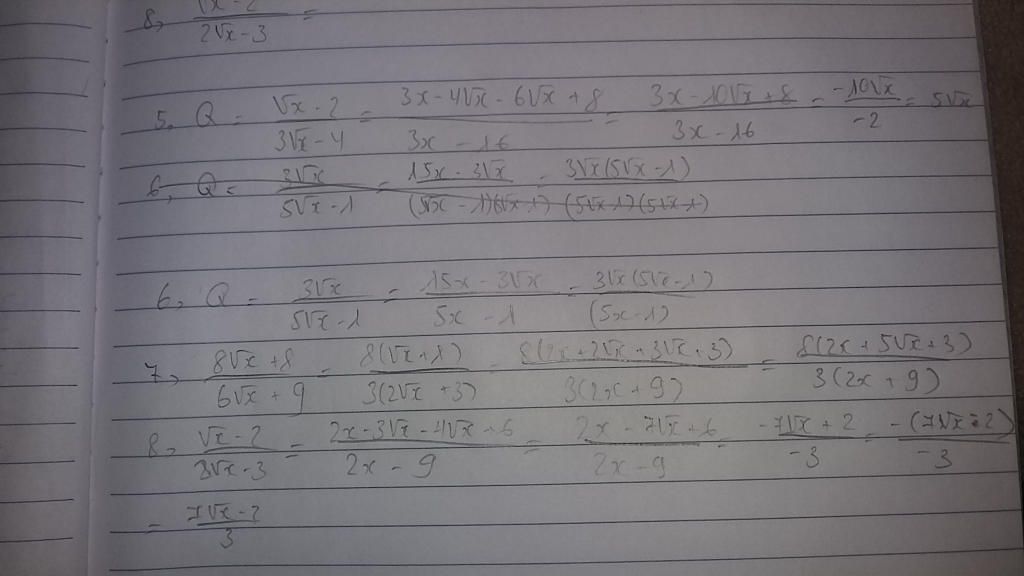 8, √x - 2 / 2√x - 3 =
5, Q = √x - 2 / 3√x - 4 = 3x - 4√x - 6√x + 8 / 3x - 16 = 3x - 10√x + 8 / 3x - 16 = -10√x / -2 = 5√x
6, Q = 3√x / 5√x - 1 = 15x - 3√x / (5√x - 1)(5√x - 1) = 3√x(5√x - 1) / (5√x - 1)(5√x - 1)
6, Q = 3√x / 5√x - 1 = 15x - 3√x / 5x - 1 = 3√x(5√x - 1) / (5x - 1)
7, 8√x + 8 / 6√x + 9 = 8(√x + 1) / 3(2√x + 3) = 8(2x + 2√x + 3√x + 3) / 3(2x + 9) = 8(2x + 5√x + 3) / 3(2x + 9)
8, √x - 2 / 3√x - 3 = 2x - 3√x - 4√x + 6 / 2x - 9 = 2x - 7√x + 6 / 2x - 9 = -7√x + 2 / -3 = -(7√x - 2) / -3
= 7√x - 2 / 3